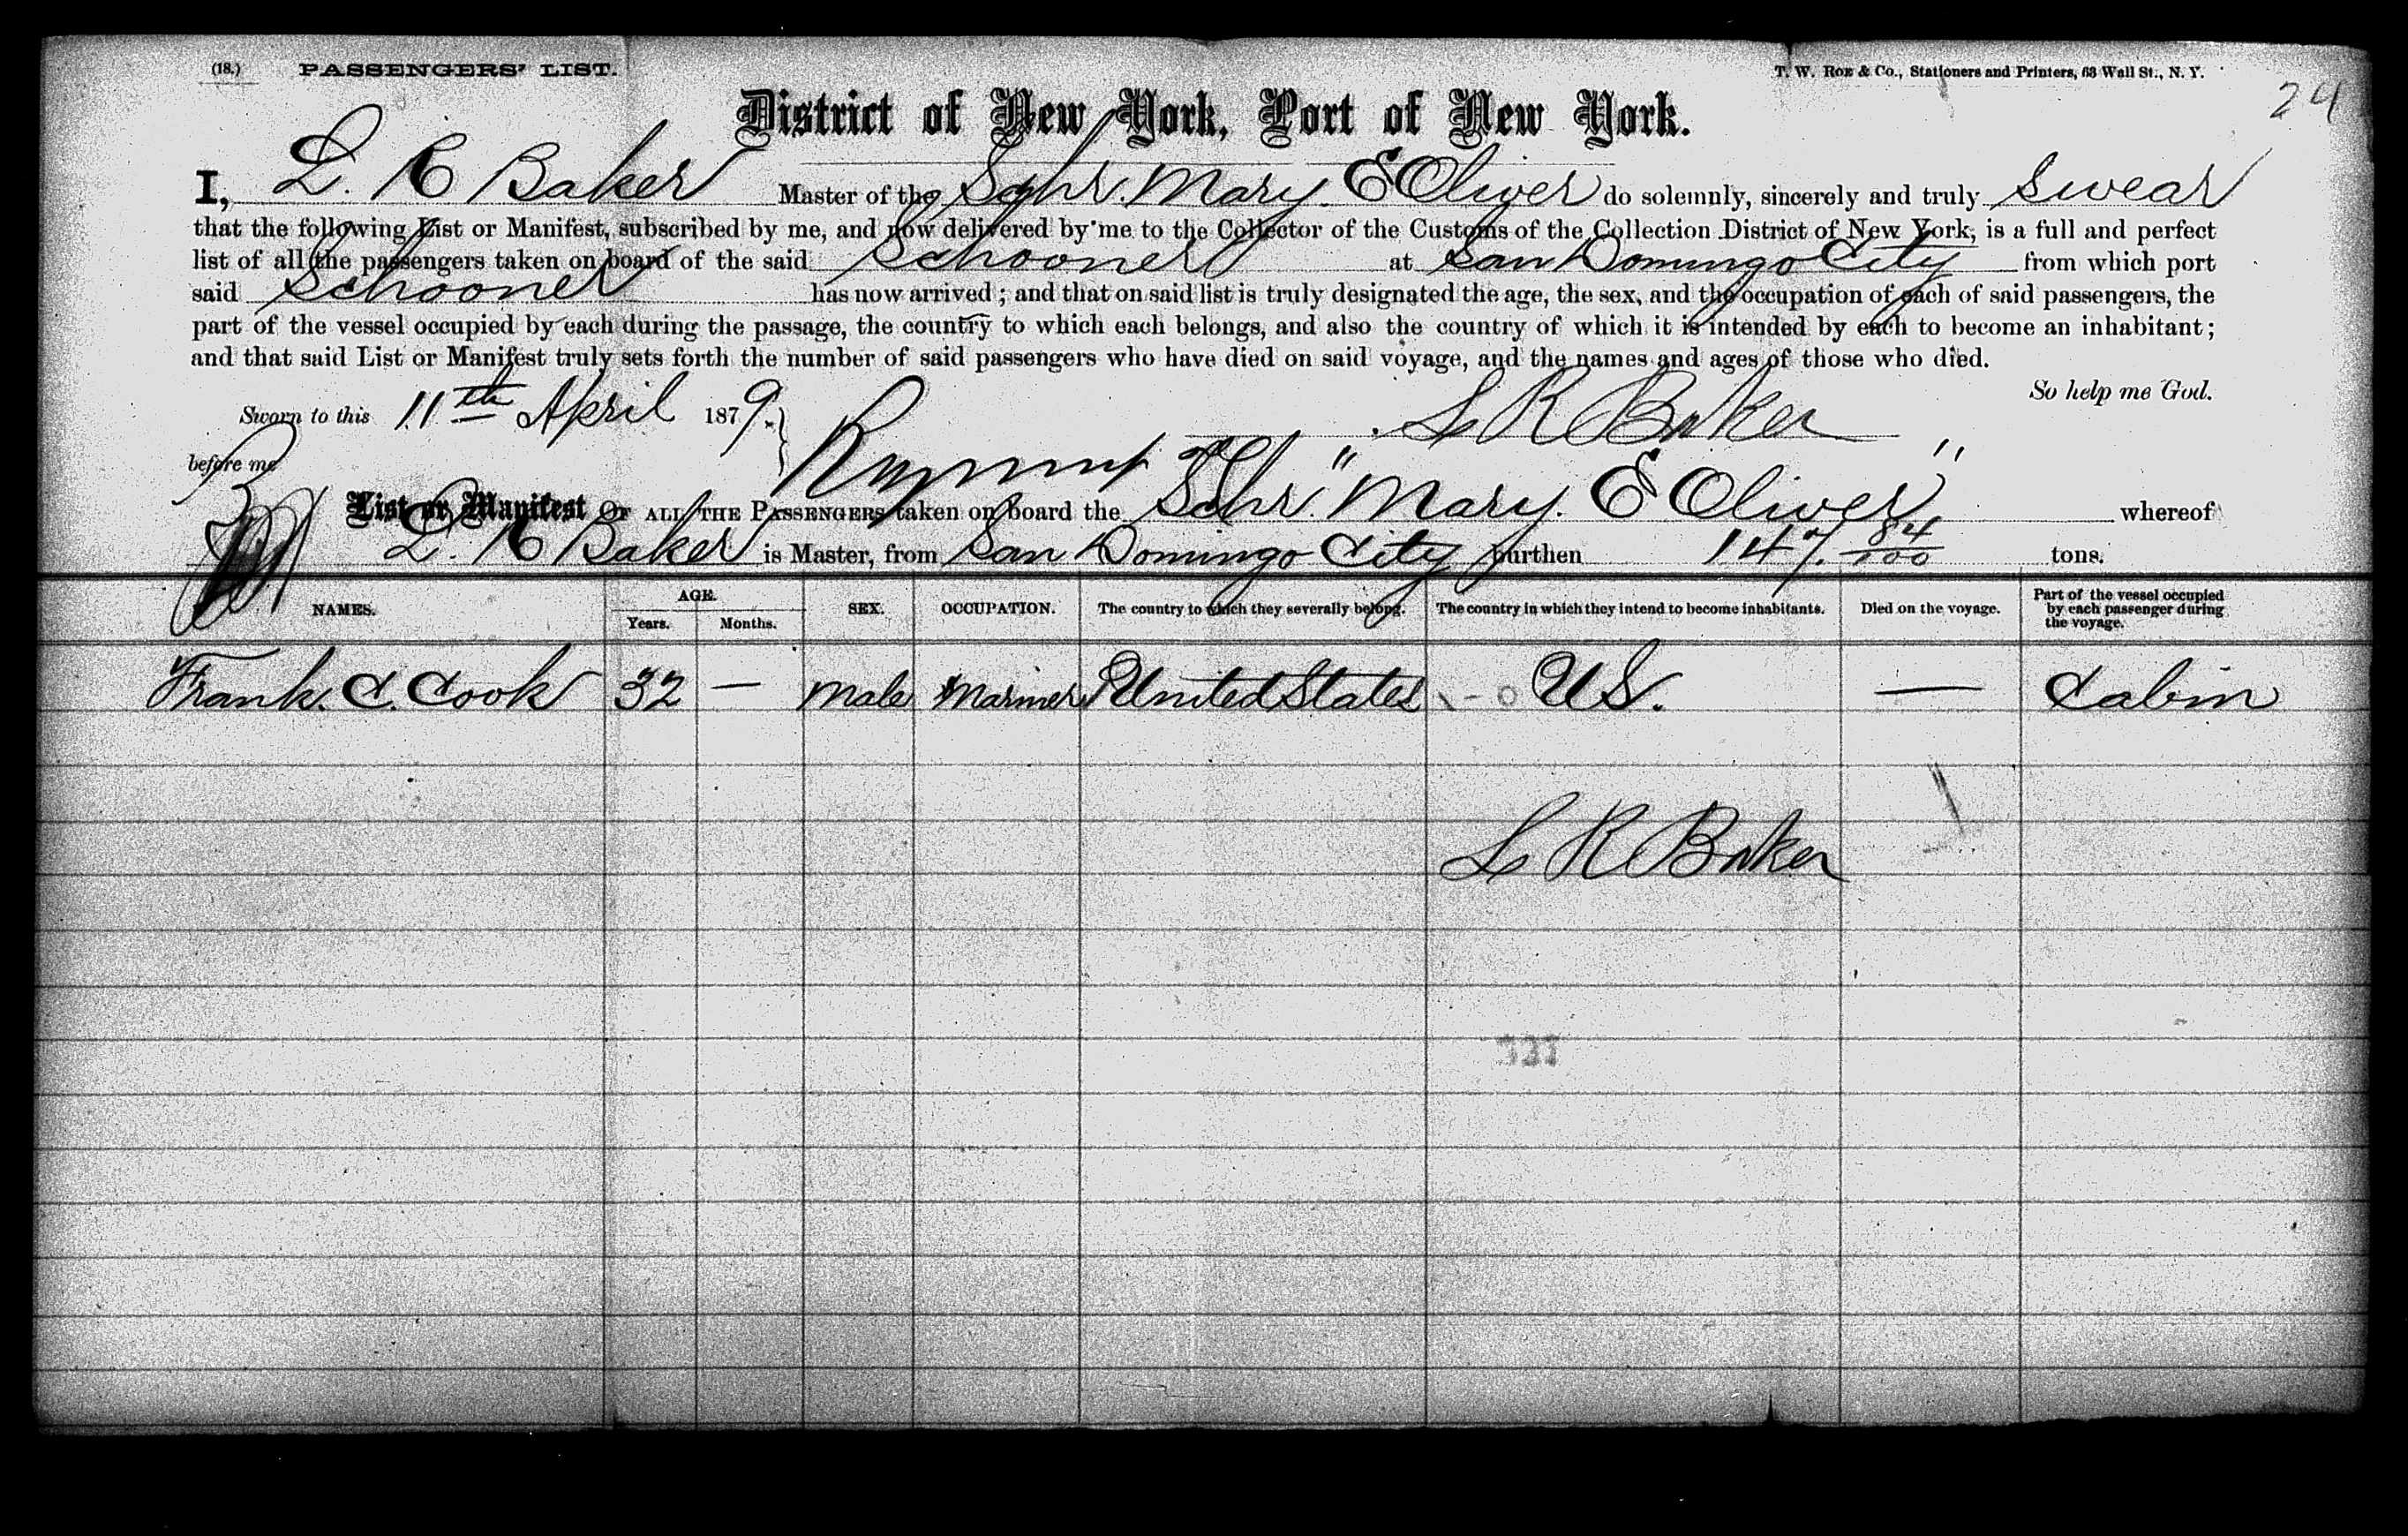 (18.) PASSENGERS' LIST. T. W. Roe & Co., Stationers and Printers, 63 Wall St., N. Y.
24
District of New York, Port of New York.
I, L. R Baker Master of the Schr. Mary. E Oliver do solemnly, sincerely and truly swear
that the following List or Manifest, subscribed by me, and now delivered by me to the Collector of the Customs of the Collection District of New York, is a full and perfect
list of all the passengers taken on board of the said Schooner at San Domingo City from which port
said Schooner has now arrived; and that on said list is truly designated the age, the sex, and the occupation of each of said passengers, the
part of the vessel occupied by each during the passage, the country to which each belongs, and also the country of which it is intended by each to become an inhabitant;
and that said List or Manifest truly sets forth the number of said passengers who have died on said voyage, and the names and ages of those who died.
So help me God.
Sworn to this 11th April 1879. L R Baker
before me
List or Manifest OF ALL THE PASSENGERS taken on board the Schr. "Mary. E Oliver" whereof
L. R Baker is Master, from San Domingo City burthen 147. 84/100 tons.
NAMES. AGE. Years. Months. SEX. OCCUPATION. The country to which they severally belong. The country in which they intend to become inhabitants. Died on the voyage. Part of the vessel occupied by each passenger during the voyage.
Frank. C. Cook 32 — Male Mariner United States U S. — Cabin
L R Baker